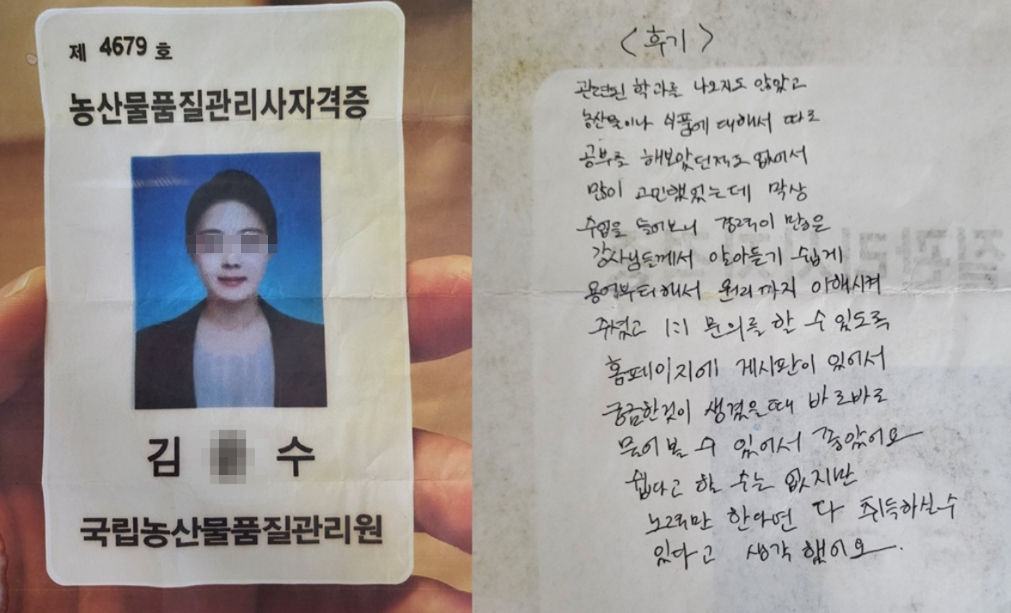 제 4679 호
농산물품질관리사자격증
김 수
국립농산물품질관리원
<후기>
관련된 학과를 나오지도 않았고
농산물이나 식품에 대해서 따로
공부를 해보았던적도 없어서
많이 고민했었는데 막상
수업을 들어보니 경력이 많은
강사님들께서 알아듣기 쉽게
용어부터해서 원리까지 이해시켜
주셨고 1:1 문의를 할 수 있도록
홈페이지에 게시판이 있어서
궁금한것이 생겼을때 바로바로
물어볼 수 있어서 좋았어요
쉽다고 할 수는 없지만
노력만 한다면 다 취득하실수
있다고 생각했어요.